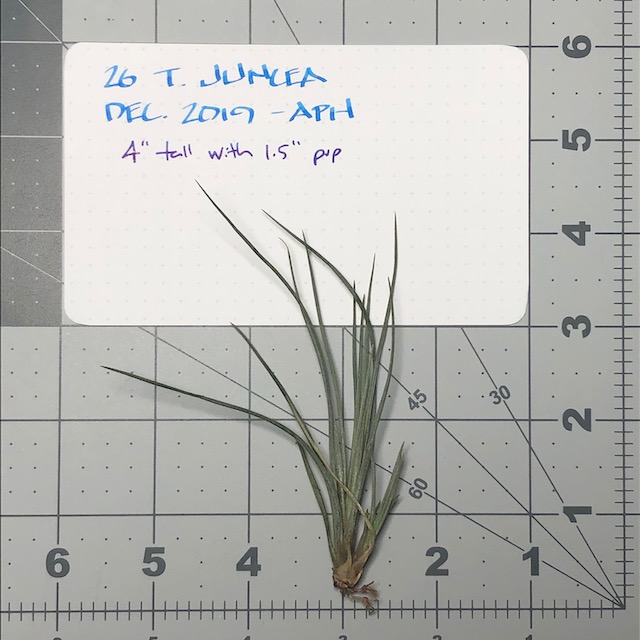 26 T. JUNCEA
DEC. 2019 - APH
4" tall with 1.5" pup
6
5
4
3
2
1
45
30
60
6 5 4 2 1